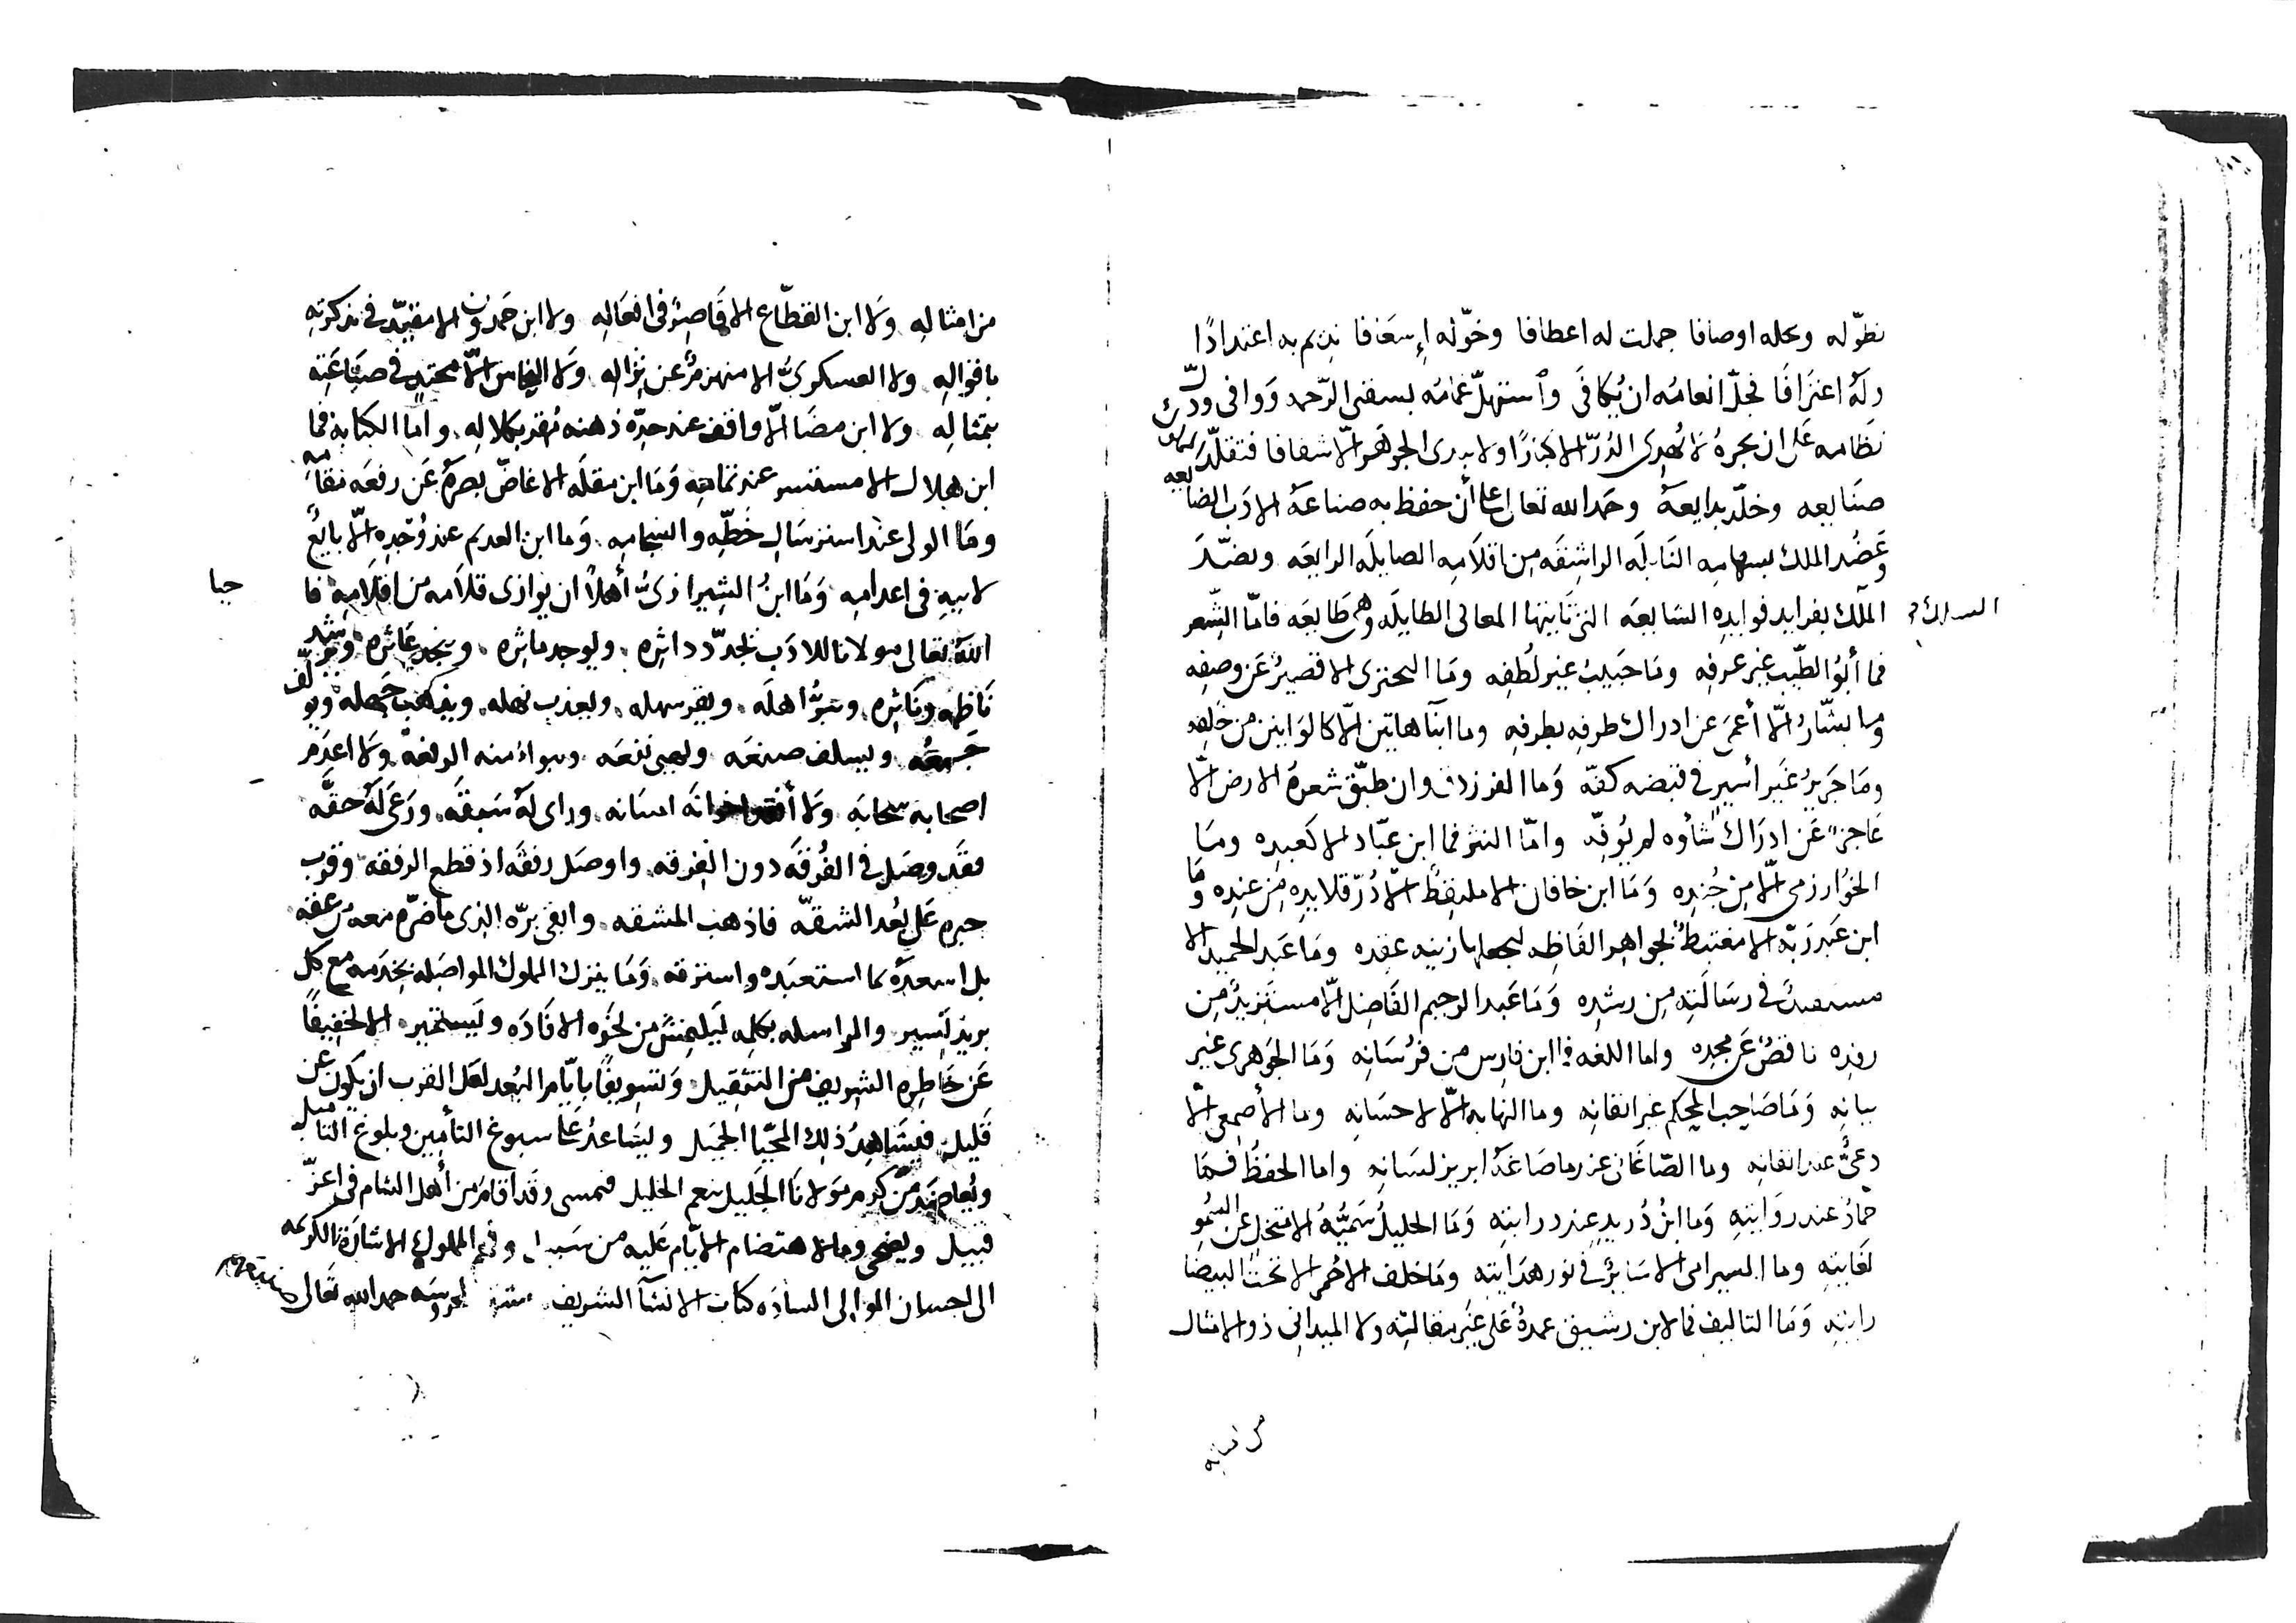 تطوّله ونحله اوصافا جملت له اعطافا وخوّله إسعافا نديم به اعتدادًا
وله اعترافا فجلّ انعامه ان يُكافَى وٱستهلّ غمامه بسقى الرّحمه ووافى ودرّ
نظامه على ان بحره لا يُهدى الدُرّ الا كبارًا ولا يدرى الجوهر الّا شفافا فتقلّد
صنايعه وخلّد بدايعه وحمد الله تعالى على أن حفظ به صناعة الادب الضايعه
وعضُد الملك بسهامه النابله الراشقه من اقلامه الصايله الرايعه ونضّدَ
الملك بفرايد فوايده السايعه التى تاتيها المعانى الطايله وهى طايعه فامّا الشّعر
فما أبُو الطّيب غير عرفه وما حَبيبٌ غير لُطفِه ومَا البحترى الا قصيرٌ عَن وصفِه
وما بشّارٌ الّا أعمى عن ادراك طرفه بطرفه وما ابنا هانئين الّا كالوانين من خَلفِه
ومَا جَريرٌ غَير أسيرٍ فى قبضه كفّه وَما الفرزدق وان طبّق شعرهُ الارض الّا
عَاجزٌ عَن ادراك شأوه لم يُوفّه وامّا النثر فما ابن عبّاد الا كعبده وما
الخوارزمى الّا مِن جُندِه وَمَا ابن خاقان الا ملتقِطٌ الّا دُرّ قلايده مِن عندِه وَمَا
ابن عَبد رَبّه الا مغتبطٌ بجواهر الفَاظِه ليجعلها زينه عقده ومَا عَبد الحميد الا
مستمدٌ فى رسَالَتِه مِن رشدِه وَمَا عَبد الرحيم الفَاضِل الّا مستَزيدٌ مِن
رفدِه ناقصٌ عَن مجدِه واما اللغه فما ابن فارس من فرُسَانِه وَمَا الجَوهرى غير
بيانِه وَمَا صَاحِب المحكم غير اتقانِه وما النهايه الّا لاحسَانِه وما الأصمعى الّا
دعىٌّ عند اتقانه وما الصّاغَانى عن رما صَاغَهُ ابريز لسَانِه واما الحفظُ فمَا
حمّادٌ عند روَايتِه وَما ابنُ دُريدٍ عِند درايتِه وَمَا الخليلُ سَمِيُّهُ الا متخلٍ عن السُّموِ
لغَايتِه وما السيرافى الا سَايرٌ فى نور هدَايتِه ومَا خلف الاحمر الا تحت البيضَا
رايتِه وَمَا التاليف فما لابن رشيق عمدةٌ عَلى غَير مقالتِه ولا الميدانى ذو الامثال
من امثالِه وَلا ابن القطّاع الا قَاصِرٌ فى افعَالِه ولا ابن حَمدون الا مقيّد فى تذكرتِه
باقوالِه ولا العسكرىُّ الا منهزمٌ عن نِزالِه وَلا النحاس الّا محتذٍ فى صنَاعَتِه
بتمثالِه ولا ابن مضَا الّا واقف عند حِدّه ذهنه مُقر بكلالِه وامّا الكتابه فما
ابن هلال الا مستسر عند تمامِه وَمَا ابن مقلَه الا غاضّ بصرهُ عَن رفعَه مقامِه
ومَا الولى عند استرسَالِ خَطّه وانسجامِه وَما ابن العديم عند وُجْدِه الّا بايعٌ
لابيهِ فى اعدامِه وَمَا ابنُ الشيرازىُّ أهلًا ان يوازى قلامه من اقلَامِه فا
الله تعالى مولانا للادَب يجدّد داثره ويوجد ماثره وينجد عَاثره ويرشد
نَاظمه ونَاثره ويبوّأ اهلَه ويقر سهله ويعذب نهله ويذهب جَهله ويولّف
جَمعُه ويسلف صنعَه ونفعَه وبواء منه الرفعَه وَلا اعدَم
اصحابه سحابَه وَلا اخوانَه احسَانه وراى لَهُ سَبقَه ورَعَى لَهُ حقَّه
فقَد وصَل فى الفُرقَه دون الفِرقه واوصَل رفقَه اذ قطع الرفقه وقرب
خبره عَلى بُعد الشقّه فاذهب المشقه وابقى برّه الذى ما ضرّه معه
بل اسعدهُ بما استعبَده واسترقه وَمَا يترك المملوك المواصَله بخِدَمه مع كل
بريدٍ يَسير والمراسله بكلمه ليلتمسَ من نحوه الافَاده وليستخبر الا تخفيفًا
عَن خَاطِره الشريف من التثقيل وَتسويفًا بايّام البُعد لعَل القرب ان يكون عن
قَليل فيشَاهِدُ ذلك المحيّا الجميل ويسَاعدُ عَلى سبوغ التأمين وبلوغ التاميل
ويُعاضدَ من كرم مَولانا الجَليل بنعم الخليل فيمسى وقَد أقامَ من أهل الشام فى اعزّ
قبيل ويضحى وما لاهتضام الايّام عَليه من سَبيل وفهم المملوك الاشارة الكريمَه
الى احسان الموالى السادَه كتاب الانشآ الشريف بمَحروسَه حمد الله تعالى